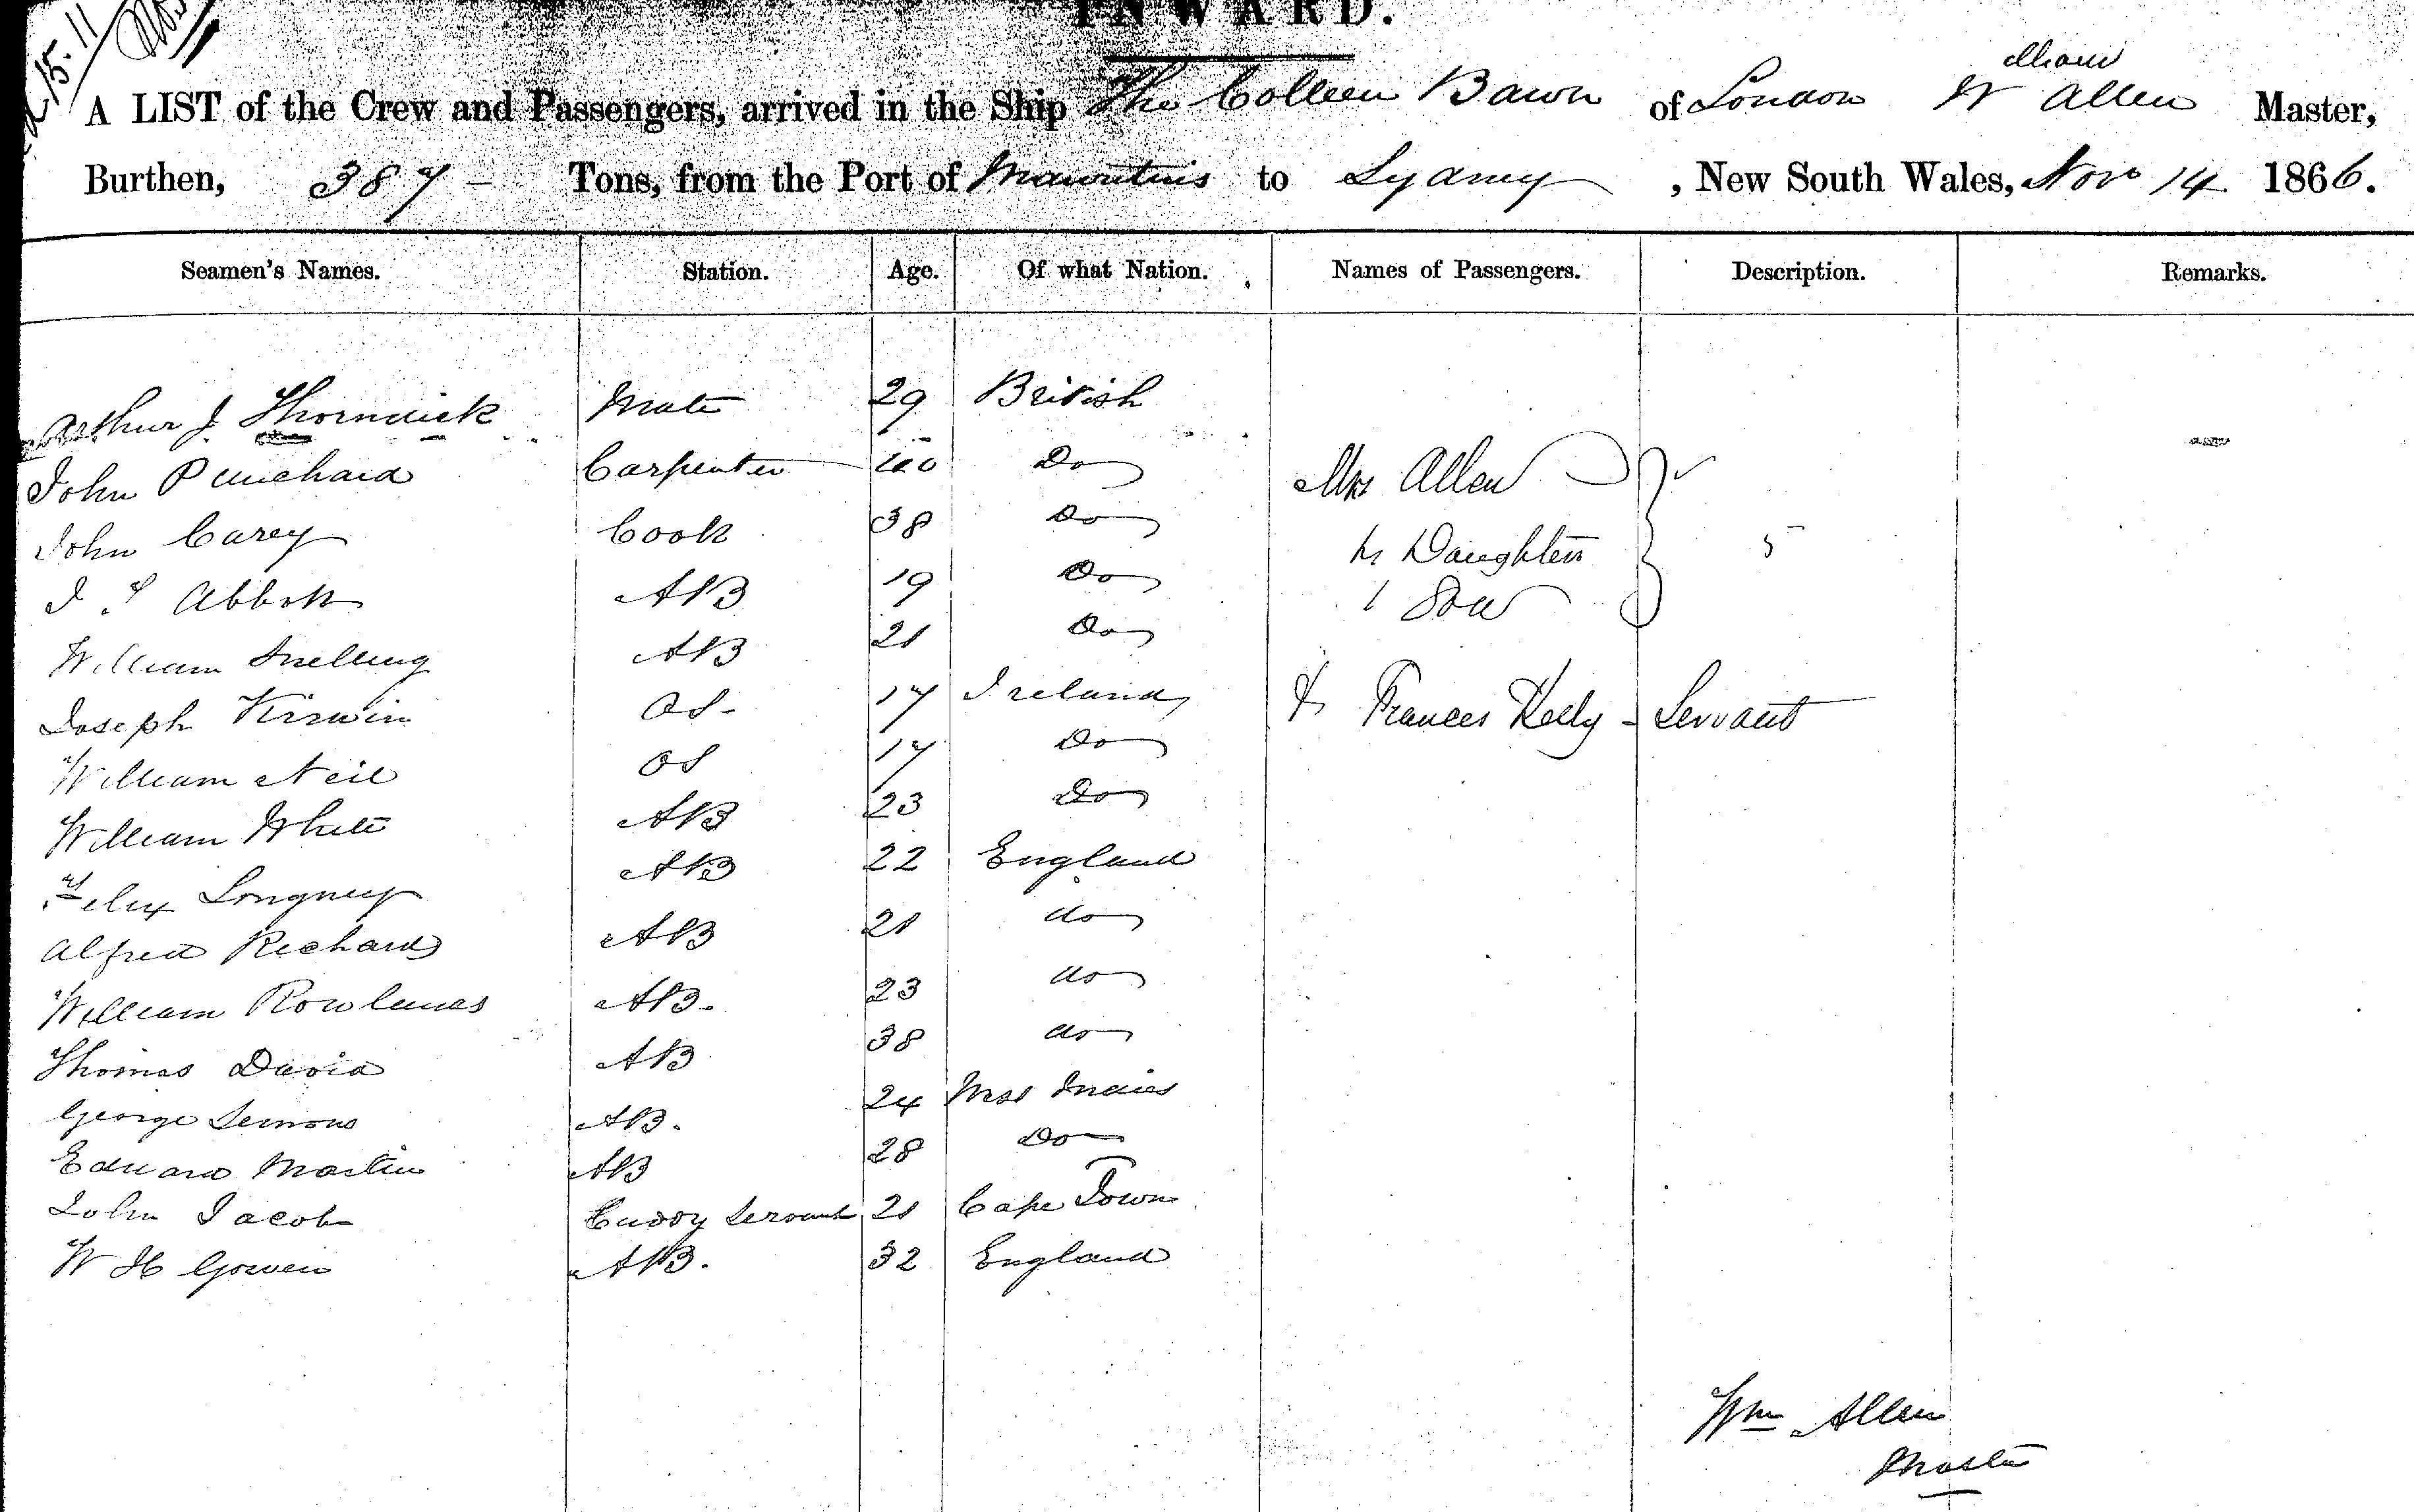 INWARD.
A LIST of the Crew and Passengers, arrived in the Ship The Colleen Bawn of London W Allen Master,
Burthen, 387 - Tons, from the Port of Mauritius to Sydney, New South Wales, Nov 14 1866.
Seamen's Names. Station. Age. Of what Nation. Names of Passengers. Description. Remarks.
Arthur J Thorndick Mate 29 British
John Punchard Carpenter 40 Do
John Carey Cook 38 Do
Mrs Allen
J Abbott AB 19 Do
4 Daughters 5
1 Son
William Snelling AB 21 Do
Joseph Kirwin OS- 17 Ireland
& Frances Kelly - Servant
William Neil OS 17 Do
William White AB 23 Do
Felix Longney AB 22 England
Alfred Richards AB 21 do
William Rowlands AB. 23 do
Thomas David AB 38 do
George Semons AB. 24 West Indies
Edward Martin AB 28 Do
John Jacob Cuddy Servant 21 Cape Town
W H Gowen AB. 32 England
Wm Allen
Master